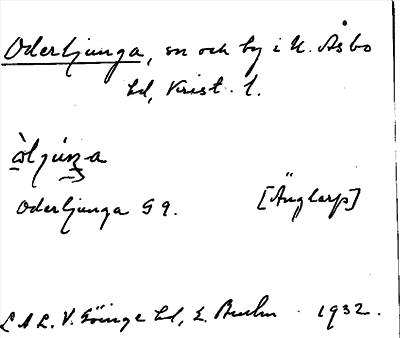 Oderljunga, sn och by i N. Åsbo
hd, Krist. l.
òljúŋa
Oderljunga 59. [Änglarp]
L A L. V. Göinge hd, E. Bruhn 1932.